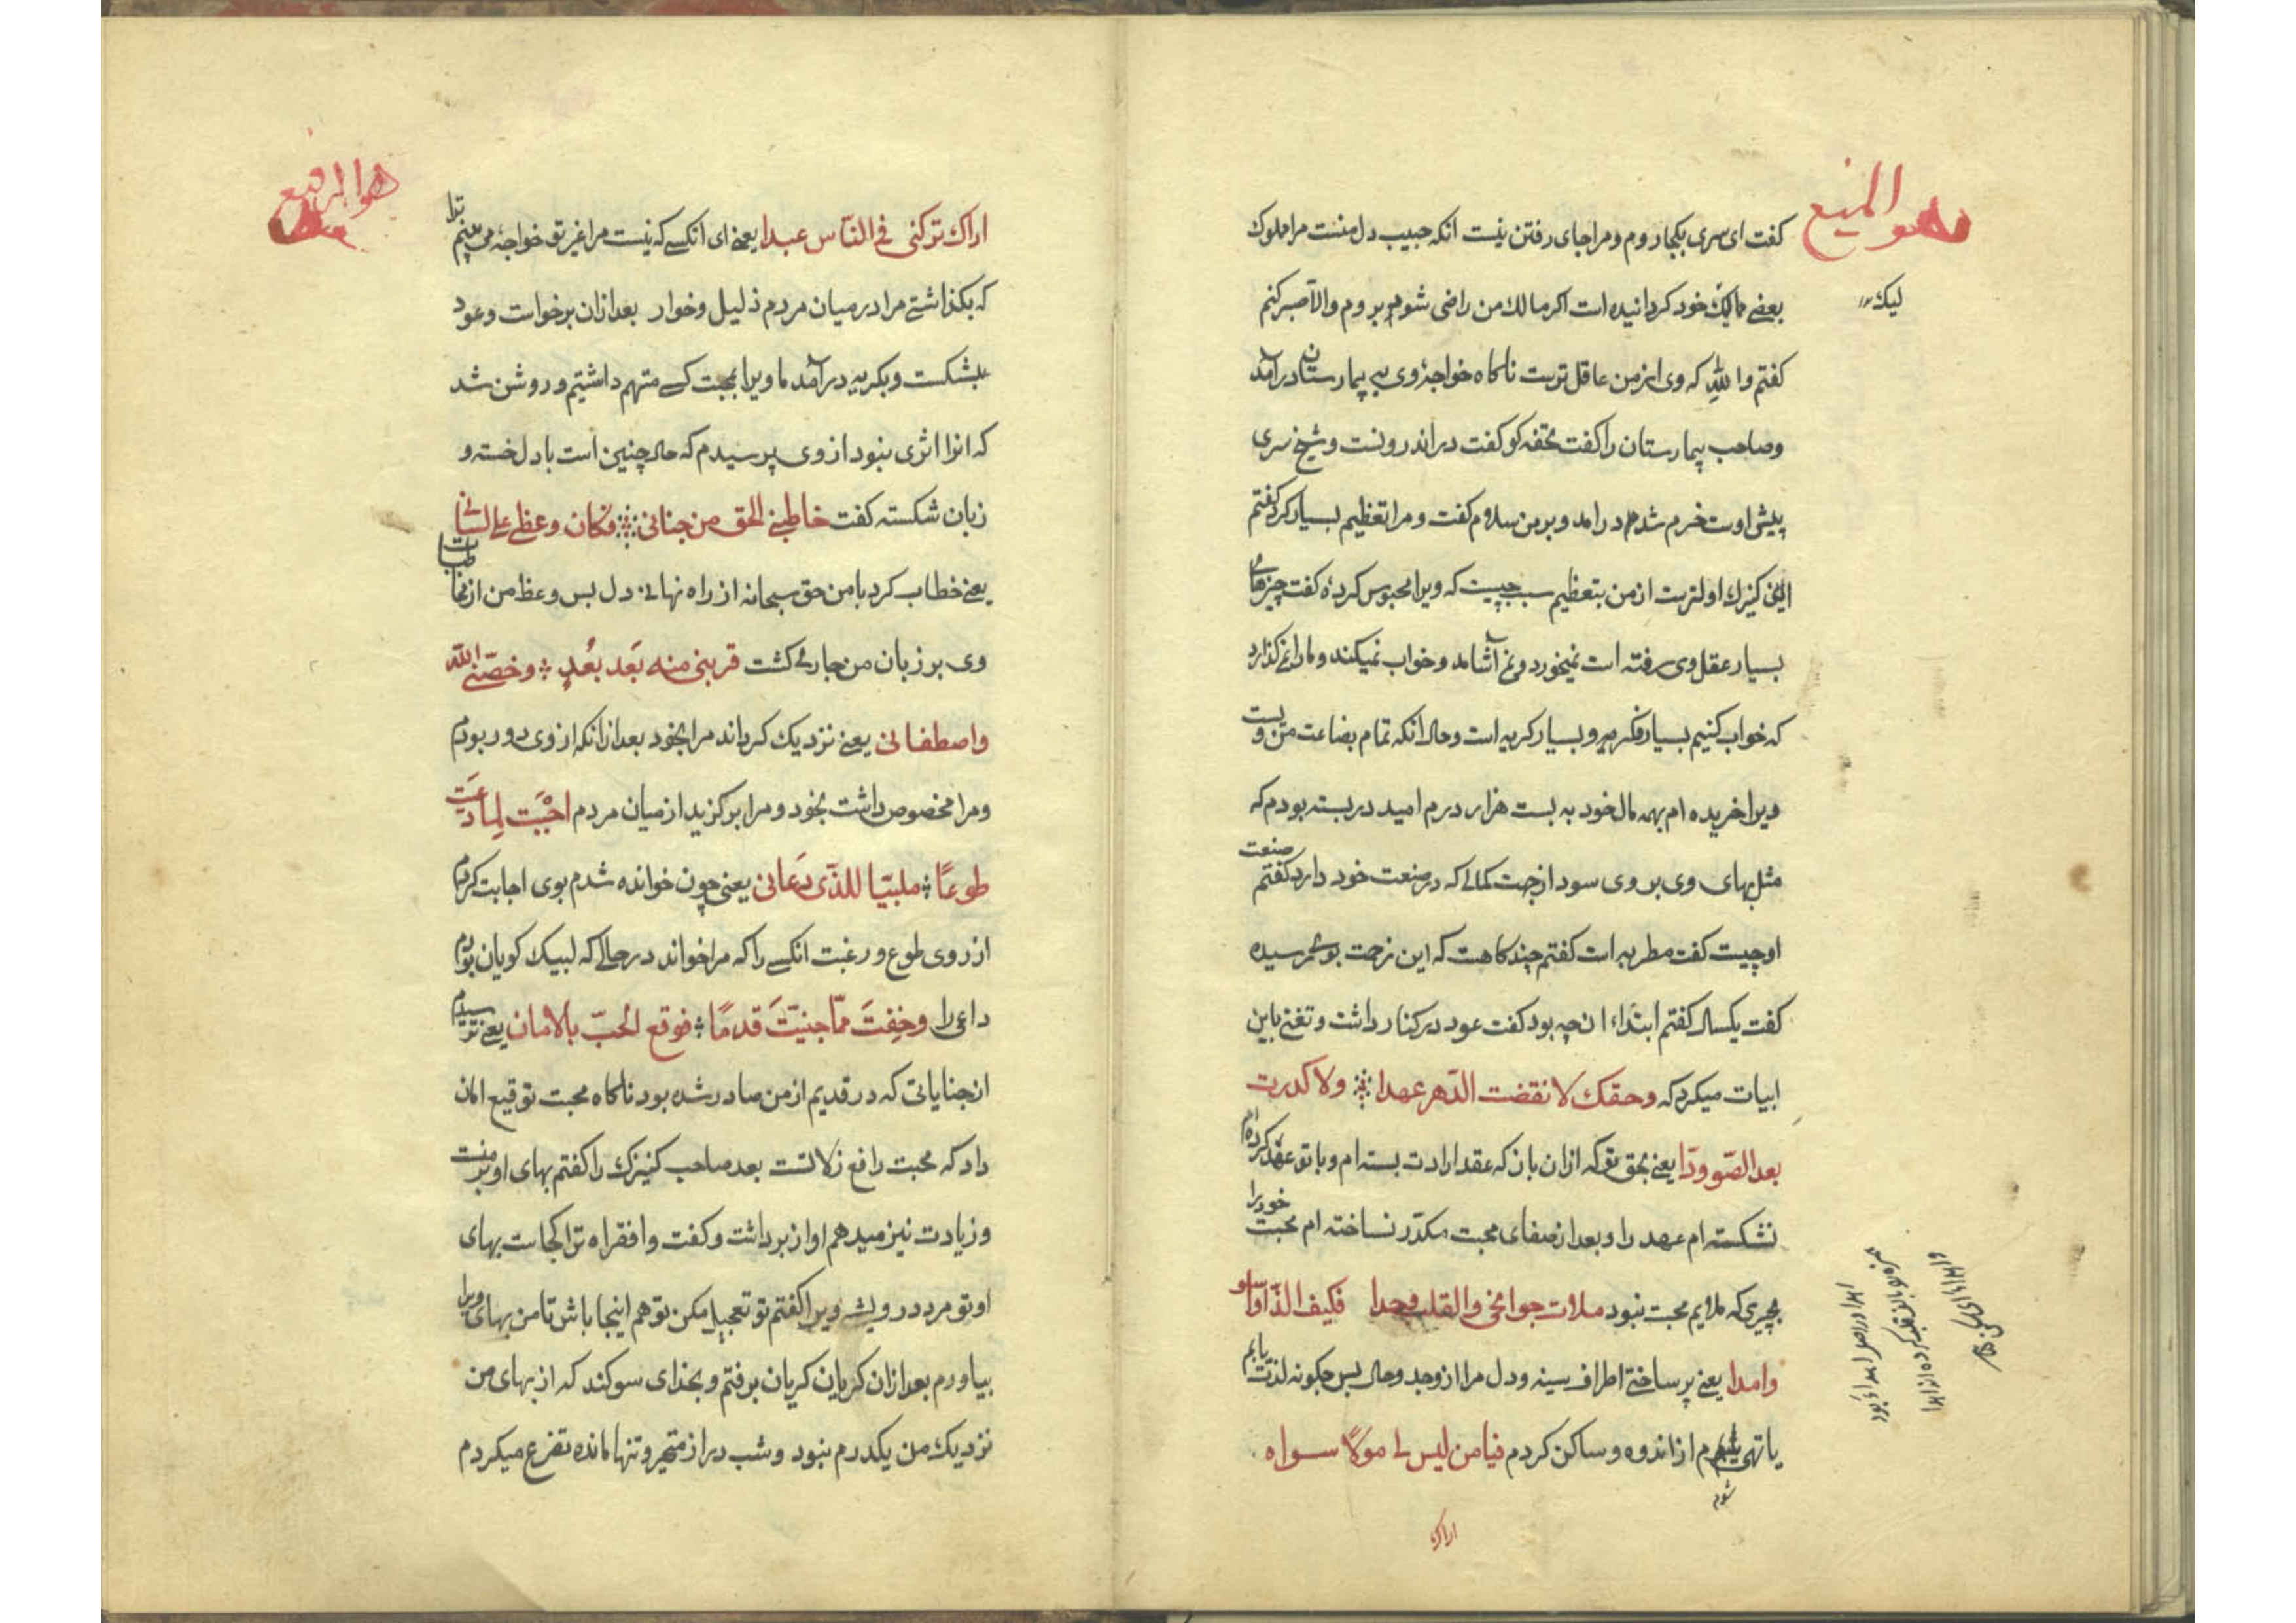 هو المنیع
کفت ای سری بکجا روم و مرا جای رفتن نیست انکه حبیب دل منست مرا مملوک
لیک
بعضی ممالیک خود کردانیده است اکر مالک من راضی شود بروم والا صبر کنم
کفتم والله که وی از من عاقل ترست ناکاه خواجهٔ وی به بیمارستان درآمد
وصاحب بیمارستان را کفت تحفه کو کفت در اندرونست و شیخ سری
پیش اوست خرم شد در امد و برمن سلام کفت و مرا تعظیم بسیار کرد کفتم
این کنیزک اولترست از من بتعظیم سبب چیست که ویرا محبوس کردهٔ کفت چیزهای
بسیار عقل وی رفته است نمیخورد و نمی آشامد و خواب نمیکند و ما را نمی کذارد
که خواب کنیم بسیار فکر و بسیار کریه است و حال انکه تمام بضاعت من ویست
ویرا خریده ام بهمه مال خود به بیست هزار درم امید در بسته بودم که
مثل بهای وی بر وی سود از جهت کمالی که در صنعت خود دارد کفتم
صنعت
او چیست کفت مطربه است کفتم چند کاهست که این زحمت بوی رسیده
کفت یکسال کفتم ابتداء ان چه بود کفت عود در کنار داشت و تغنی باین
ابیات میکرد که وحقک لا نقضت الدهر عهدا ولا کدرت
بعد الصّفو ودّا یعنی بحق تو که ازان باز که عقد ارادت بسته ام و با تو عهد کرده ام
نشکسته ام عهد را و بعد از صفای محبت مکدّر نساخته ام محبت خود را
بچیزی که ملایم محبت نبود ملات جوانحی والقلب وجدا فکیف الذّ او اسلو
وامدا یعنی پر ساختی اطراف سینه و دل مرا از وجد و حال پس چکونه لذت یابم
یا تهی شوم از اندوه و ساکن کردم فیا من لیس لی مولا سواه
شوم
اراک
هو الرفیع
اراک ترکتنی فی النّاس عبدا یعنی ای انکسی که نیست مرا غیر تو خواجهٔ می بینم ترا
که بکذاشتی مرا در میان مردم ذلیل و خوار بعد ازان برخواست و عود
بشکست و بکریه درآمد ما ویرا بمحبت کسی متهم داشتیم و روشن شد
که انرا اثری نبود از وی پرسیدم که حال چنین است با دل خسته و
زبان شکسته کفت خاطبنی الحق من جنانی فکان وعظی علی لسانی
یعنی خطاب کرد با من حق سبحانه از راه نهانی دل پس وعظ من از مخاطبات
وی بر زبان من جاری کشت قربنی منه بَعد بُعدٍ وخصّنی الله
واصطفانی یعنی نزدیک کرداند مرا بخود بعد ازانکه از وی دور بودم
و مرا مخصوص داشت بخود و مرا برکزید از میان مردم اجَبْت لِما دُعیت
طوعًا ملبّیا للذّی دَعانی یعنی چون خوانده شدم بوی اجابت کردم
از روی طوع و رغبت انکسی را که مرا خواند در حالی که لبیک کویان بودم
داعی را وخِفتَ ممّا جنیتَ قدمًا فوقع الحبّ بالامان یعنی ترسیدم
از جنایاتی که در قدیم از من صادر شده بود ناکاه محبت توقیع امان
داد که محبت رافع زلاتست بعد صاحب کنیزک را کفتم بهای او بر منست
و زیادت نیز میدهم آواز برداشت و کفت وا فقراه ترا کجاست بهای
او تو مرد درویشی ویرا کفتم تو تعجیل مکن تو هم اینجا باش تا من بهای ویرا
بیاورم بعد ازان کریان کریان برفتم و بخدای سوکند که از بهای من
نزدیک من یکدرم نبود و شب دراز متحیر و تنها مانده تضرع میکردم